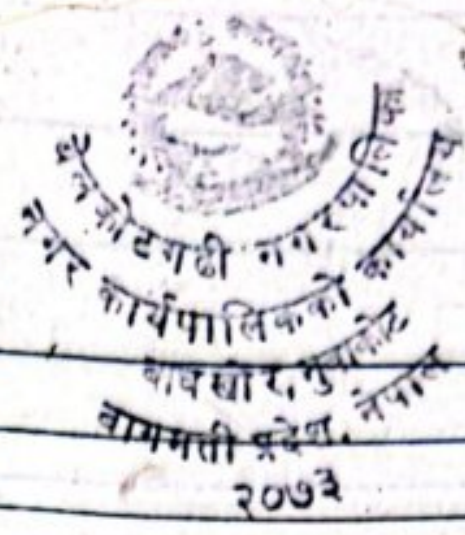 बेलकोटगढी नगरपालिका
नगर कार्यपालिकको कार्यालय
नुवाकोट
बागमती प्रदेश, नेपाल
२०७३